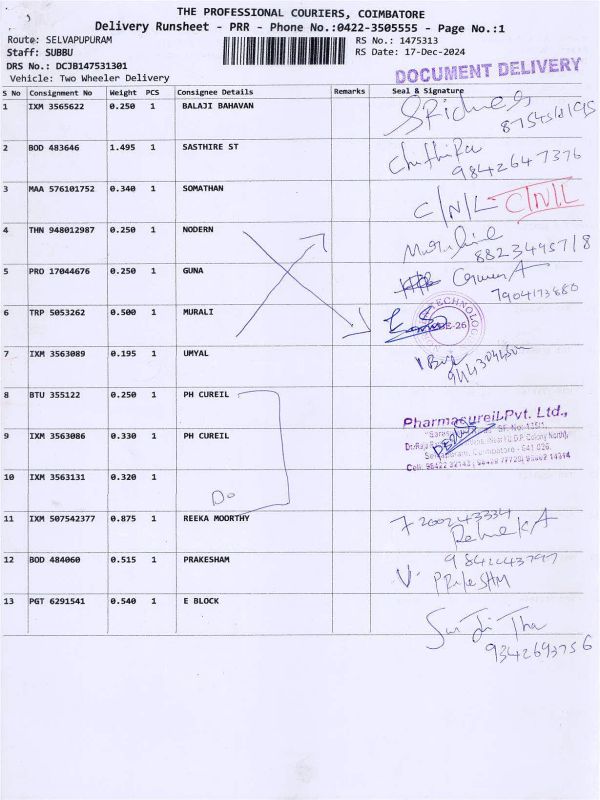 THE PROFESSIONAL COURIERS, COIMBATORE
Delivery Runsheet - PRR - Phone No.:0422-3505555 - Page No.:1
Route: SELVAPUPURAM
RS No.: 1475313
Staff: SUBBU
RS Date: 17-Dec-2024
DRS No.: DCJB147531301
Vehicle: Two Wheeler Delivery
DOCUMENT DELIVERY
S No Consignment No Weight PCS Consignee Details Remarks Seal & Signature
1 IXM 3565622 0.250 1 BALAJI BAHAVAN
2 BOD 483646 1.495 1 SASTHIRE ST
9842647376
3 MAA 576101752 0.340 1 SOMATHAN
C/N/L C/N/L
4 THN 948012987 0.250 1 NODERN
5 PRO 17044676 0.250 1 GUNA
7904173880
6 TRP 5053262 0.500 1 MURALI
7 IXM 3563089 0.195 1 UMYAL
8 BTU 355122 0.250 1 PH CUREIL
Pharmacureil Pvt. Ltd.,
9 IXM 3563086 0.330 1 PH CUREIL
10 IXM 3563131 0.320 1
Do
11 IXM 507542377 0.875 1 REEKA MOORTHY
12 BOD 484060 0.515 1 PRAKESHAM
13 PGT 6291541 0.540 1 E BLOCK
9342693756